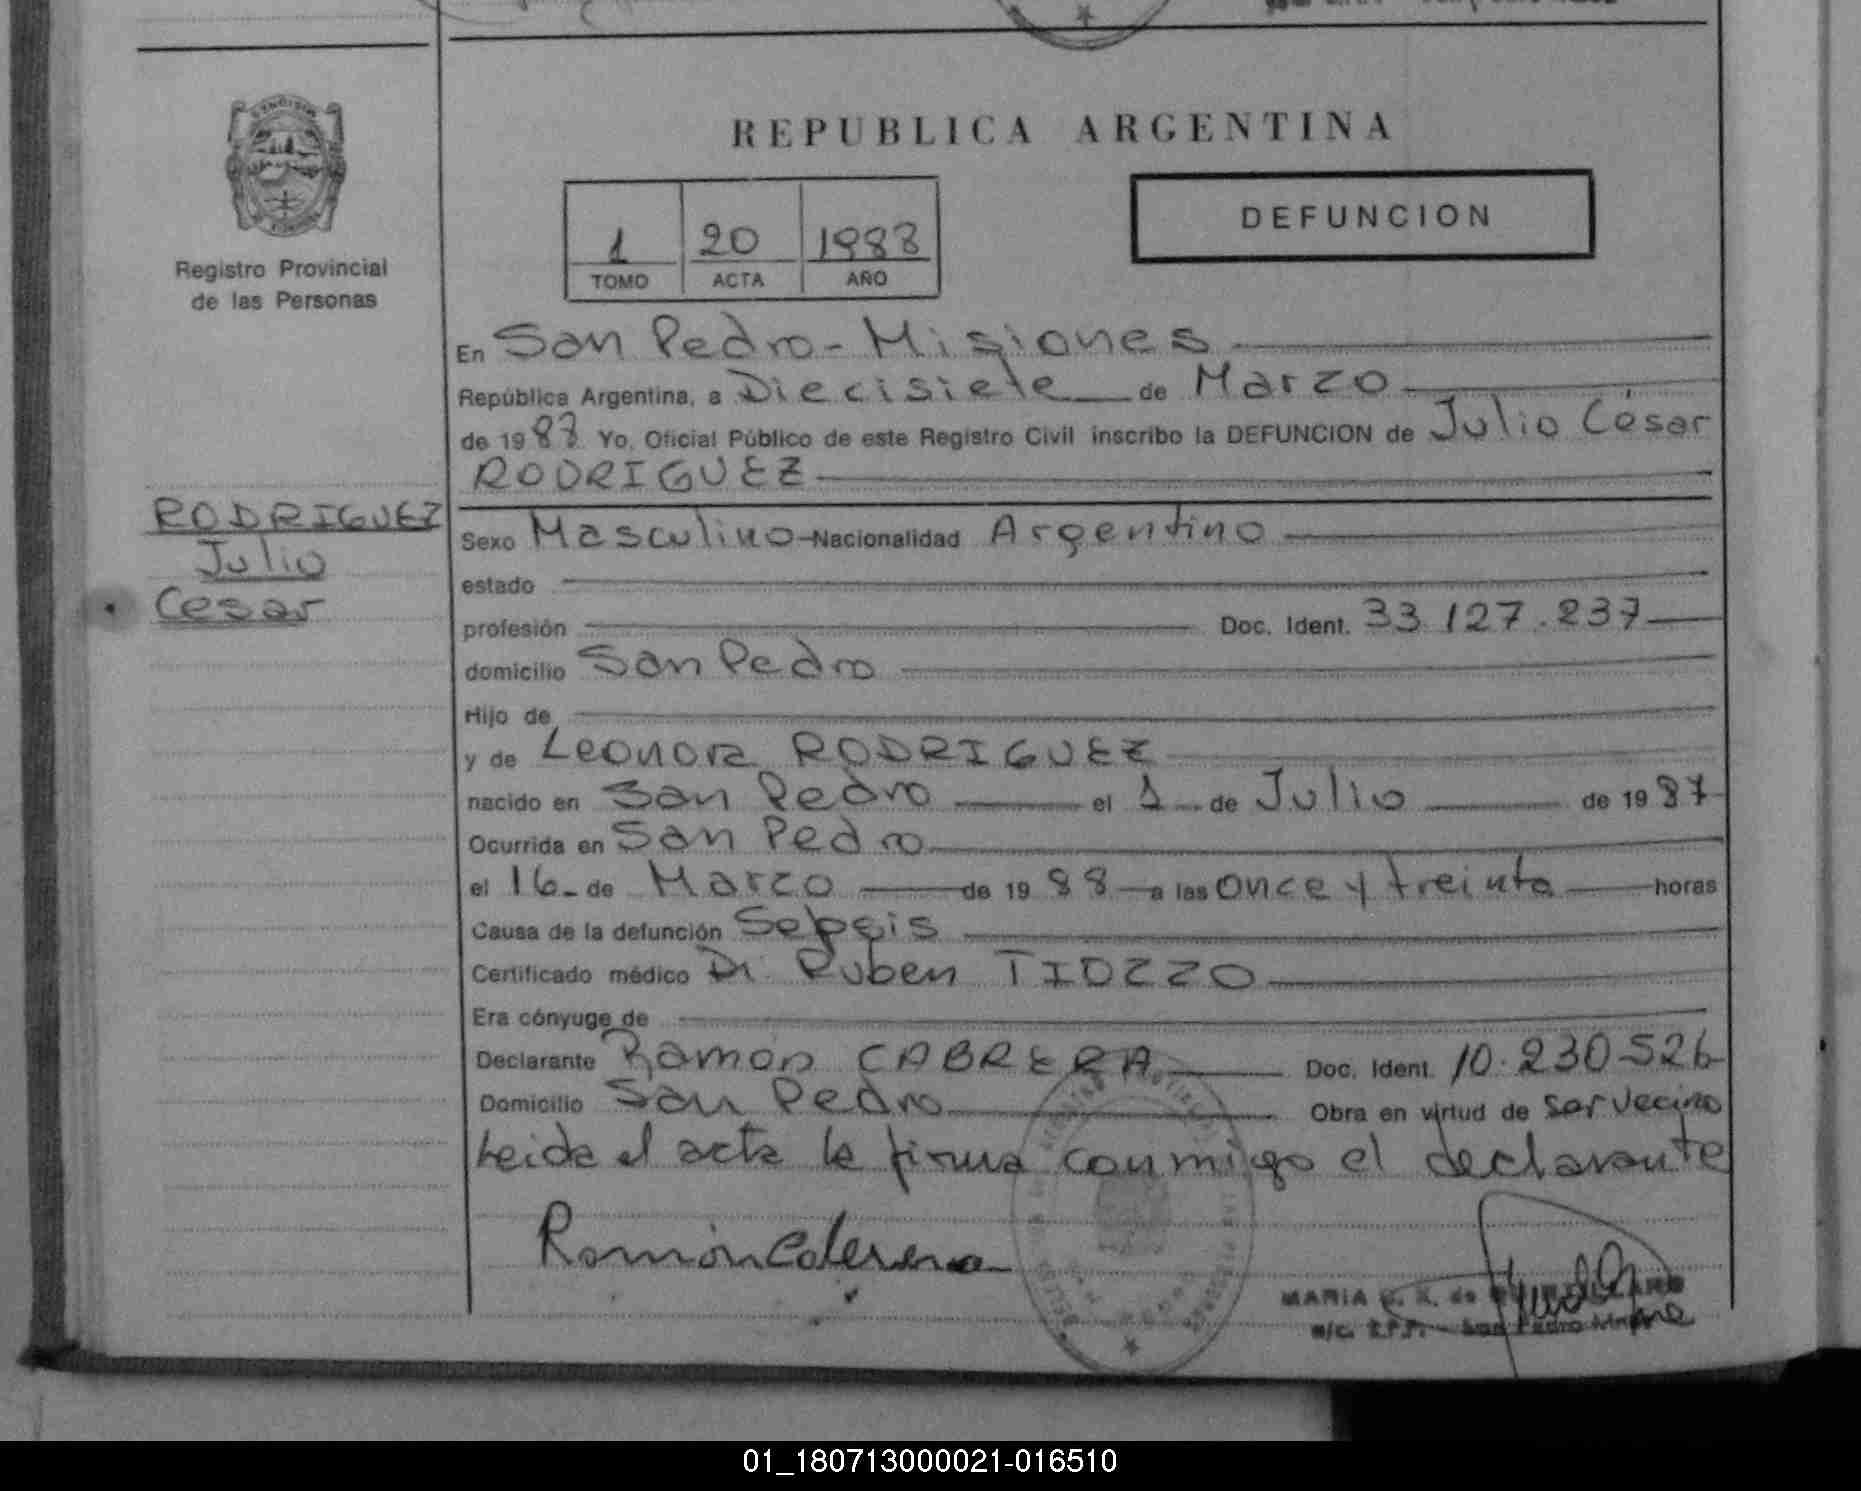 REPUBLICA ARGENTINA
Registro Provincial
de las Personas
1 20 1988
TOMO ACTA AÑO
DEFUNCION
En San Pedro - Misiones
República Argentina, a Diecisiete de Marzo
de 1988 Yo, Oficial Público de este Registro Civil inscribo la DEFUNCION de Julio César
RODRIGUEZ
RODRIGUEZ
Julio
Cesar
Sexo Masculino - Nacionalidad Argentino
estado
profesión Doc. Ident. 33.127.237
domicilio San Pedro
Hijo de
y de Leonora RODRIGUEZ
nacido en San Pedro el 1 de Julio de 1987
Ocurrida en San Pedro
el 16 de Marzo de 1988 a las once y treinta horas
Causa de la defunción Sepsis
Certificado médico Dr. Ruben TIOZZO
Era cónyuge de
Declarante Ramón CABRERA Doc. Ident. 10.230.526
Domicilio San Pedro Obra en virtud de ser vecino
Leida el acta la firma conmigo el declarante
Ramón
MARIA de
San Pedro
01_180713000021-016510